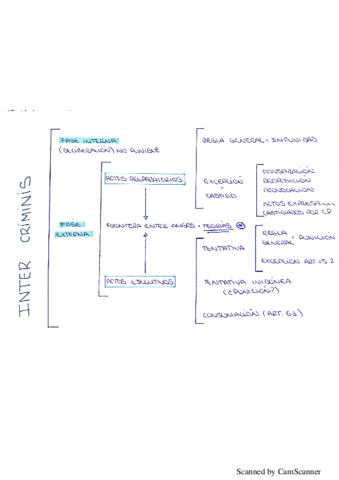 INTER CRIMINIS
FASE INTERNA
(DELIBERACIÓN) NO PUNIBLE
FASE
EXTERNA
ACTOS PREPARATORIOS
REGLA GENERAL = IMPUNIDAD
EXCEPCIÓN
=
CASTIGO
CONSPIRACIÓN
PROPOSICIÓN
PROVOCACIÓN
ACTOS EXPRESA
CASTIGADOS POR CP
FRONTERA ENTRE AMBOS = TEORÍAS
ACTOS EJECUTIVOS
TENTATIVA
REGLA
GENERAL = PUNICIÓN
EXCEPCIÓN ART. 15.2
TENTATIVA INIDÓNEA
(¿PUNICIÓN?)
CONSUMACIÓN (ART. 61)
Scanned by CamScanner